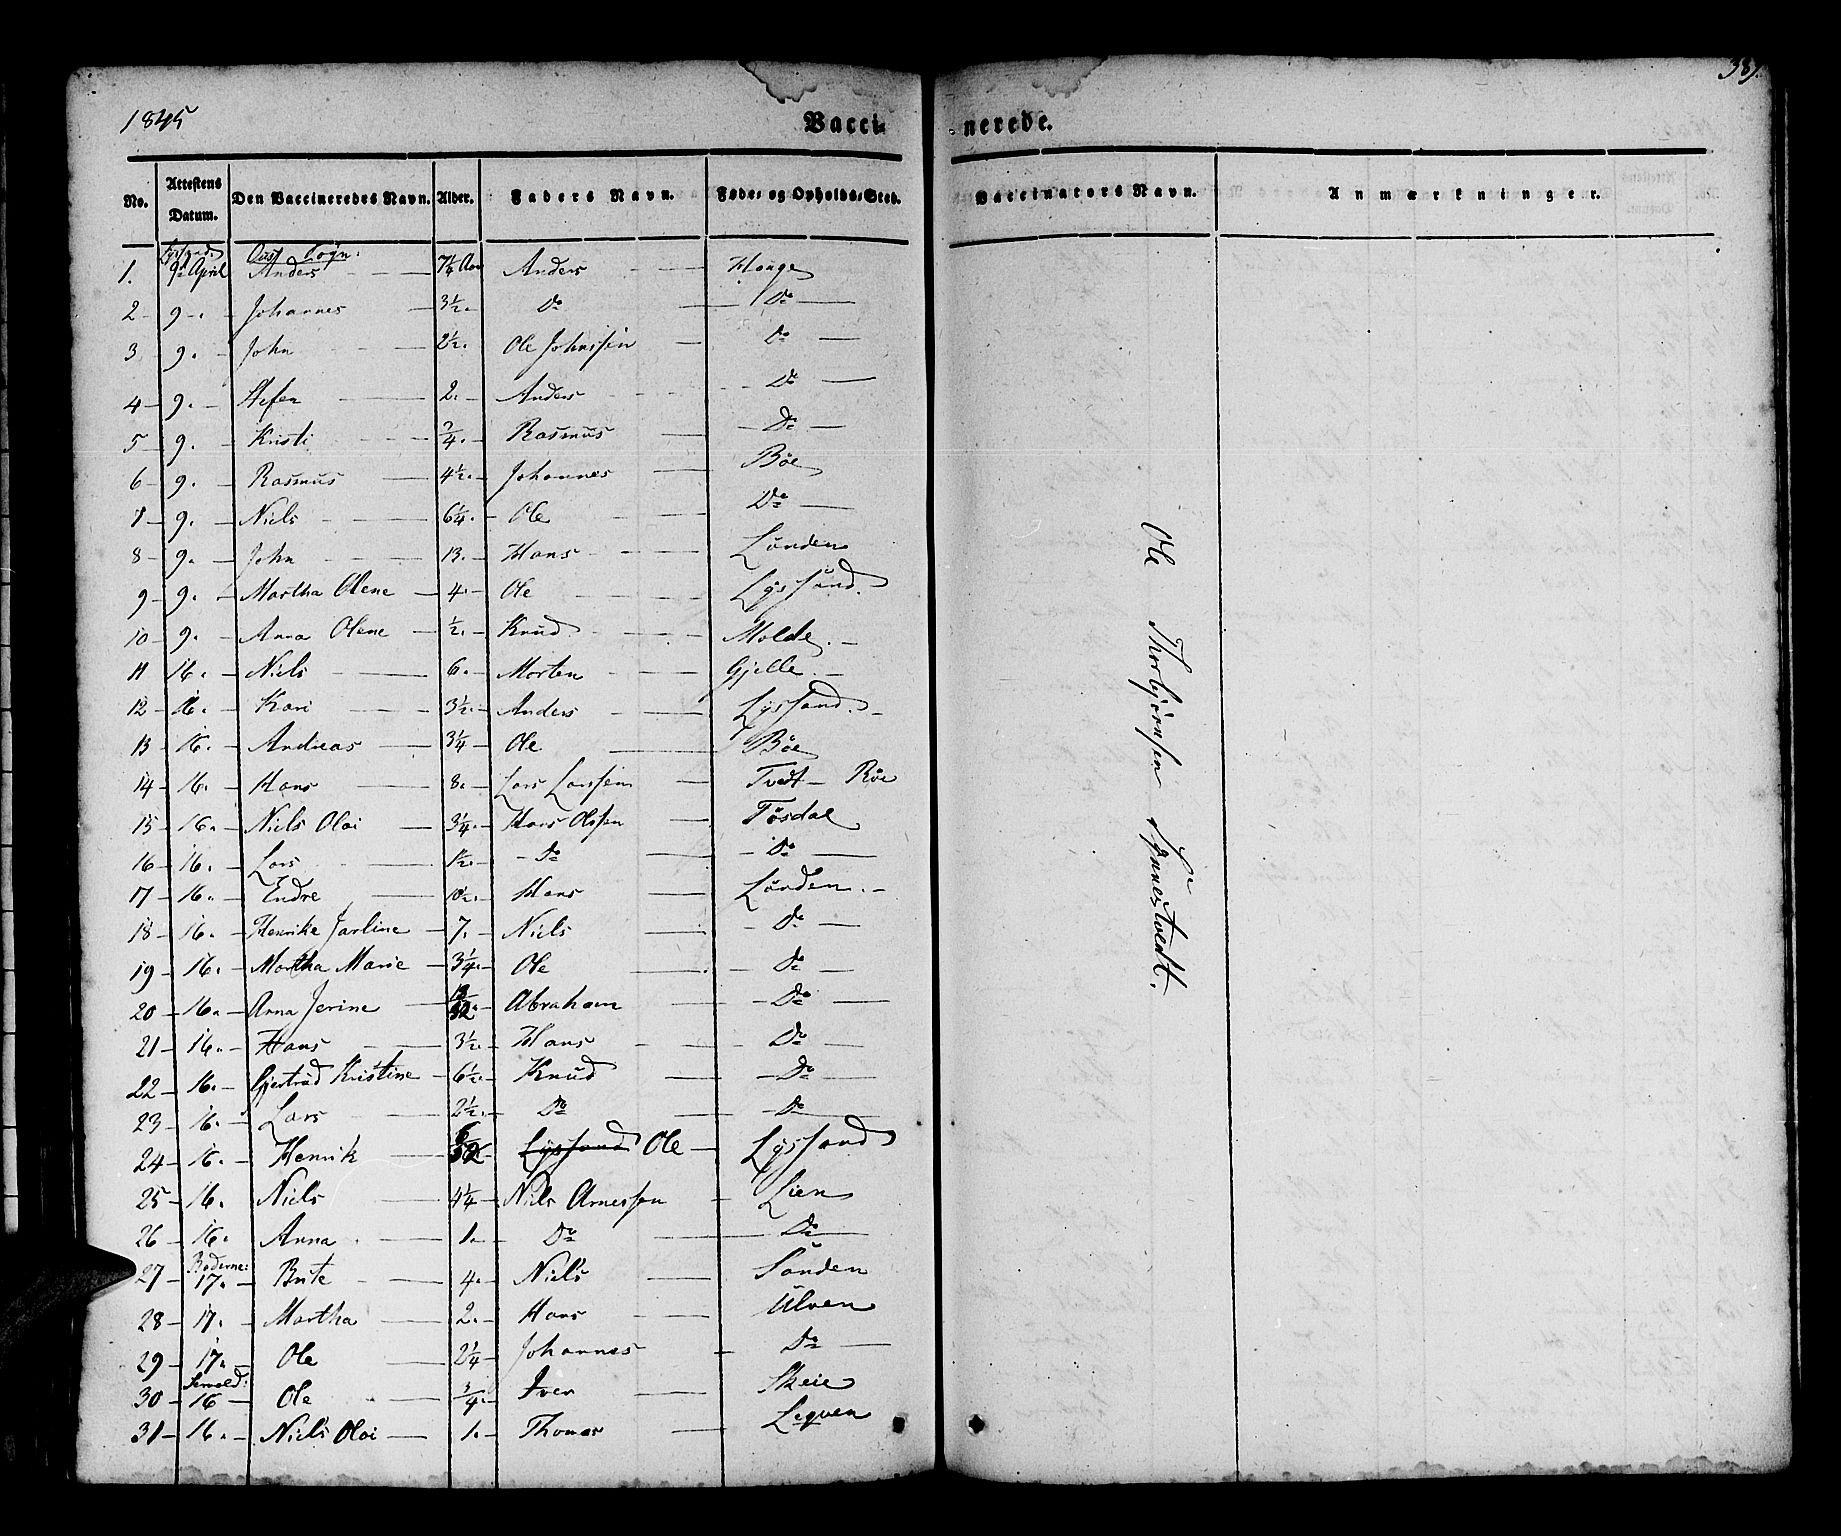 1845
Vaccinerede.
No. Attestens Datum. Den Vaccineredes Navn. Alder. Faders Navn. Føde- og Opholds-Sted. Vaccinators Navn. Anmærkninger.
Sogn:
1. 9de April Anders 7¼ Aar Anders Hauge
2 9 Johannes 3½ Do Do
3 9. John 2½. Ole Johnssen Do
4 9. 2. Anders Do
5 9. Kristi ¾. Rasmus Do
6 9. Rasmus 4½. Johannes Böe
7 9. Niels 6¼. Ole Do
8 9. John 13. Hans Lünden
9 9. Martha Olene 4. Ole Lyssand.
10 9. Anna Olene ½. Knud Molde.
11 16. Niels 6. Morten Gjelle.
12 16. Kari 3½. Anders Lyssand.
13 16. Andreas 3¼ Ole Böe
14 16. Hans 8. Lars Larssen Tvedt Röe
15 16. Niels Olai 3¼. Hans Olssen Tösdal
16 16. Lars 1½. Do Do
17 16. Endre 10½. Hans Lünden.
18 16. Henrike Jarline 7. Niels Do
19 16. Martha Marie 3¼. Ole Do
20 16. Anna Jerine Abraham Do
21 16. Hans 3½. Hans Do
22 16. Gjertrüd Kristine 6½. Knüd Do
23 16. Lars 2½. Do Do
24 16. Henrik Lyssand Ole Lyssand
25 16. Niels 4¼ Nils Arnessen Lien
26 16. Anna 1. Do Do
27 17. Brite 4. Niels Sanden
28 17. Martha 2. Hans Ulven
29 17. Ole 2¼ Johannes Do
30 16 Ole ¾. Iver Skeie
31 16. Niels Olai 1. Thomas Leqven
Ole Thorbjörnsen Synnestvedt.